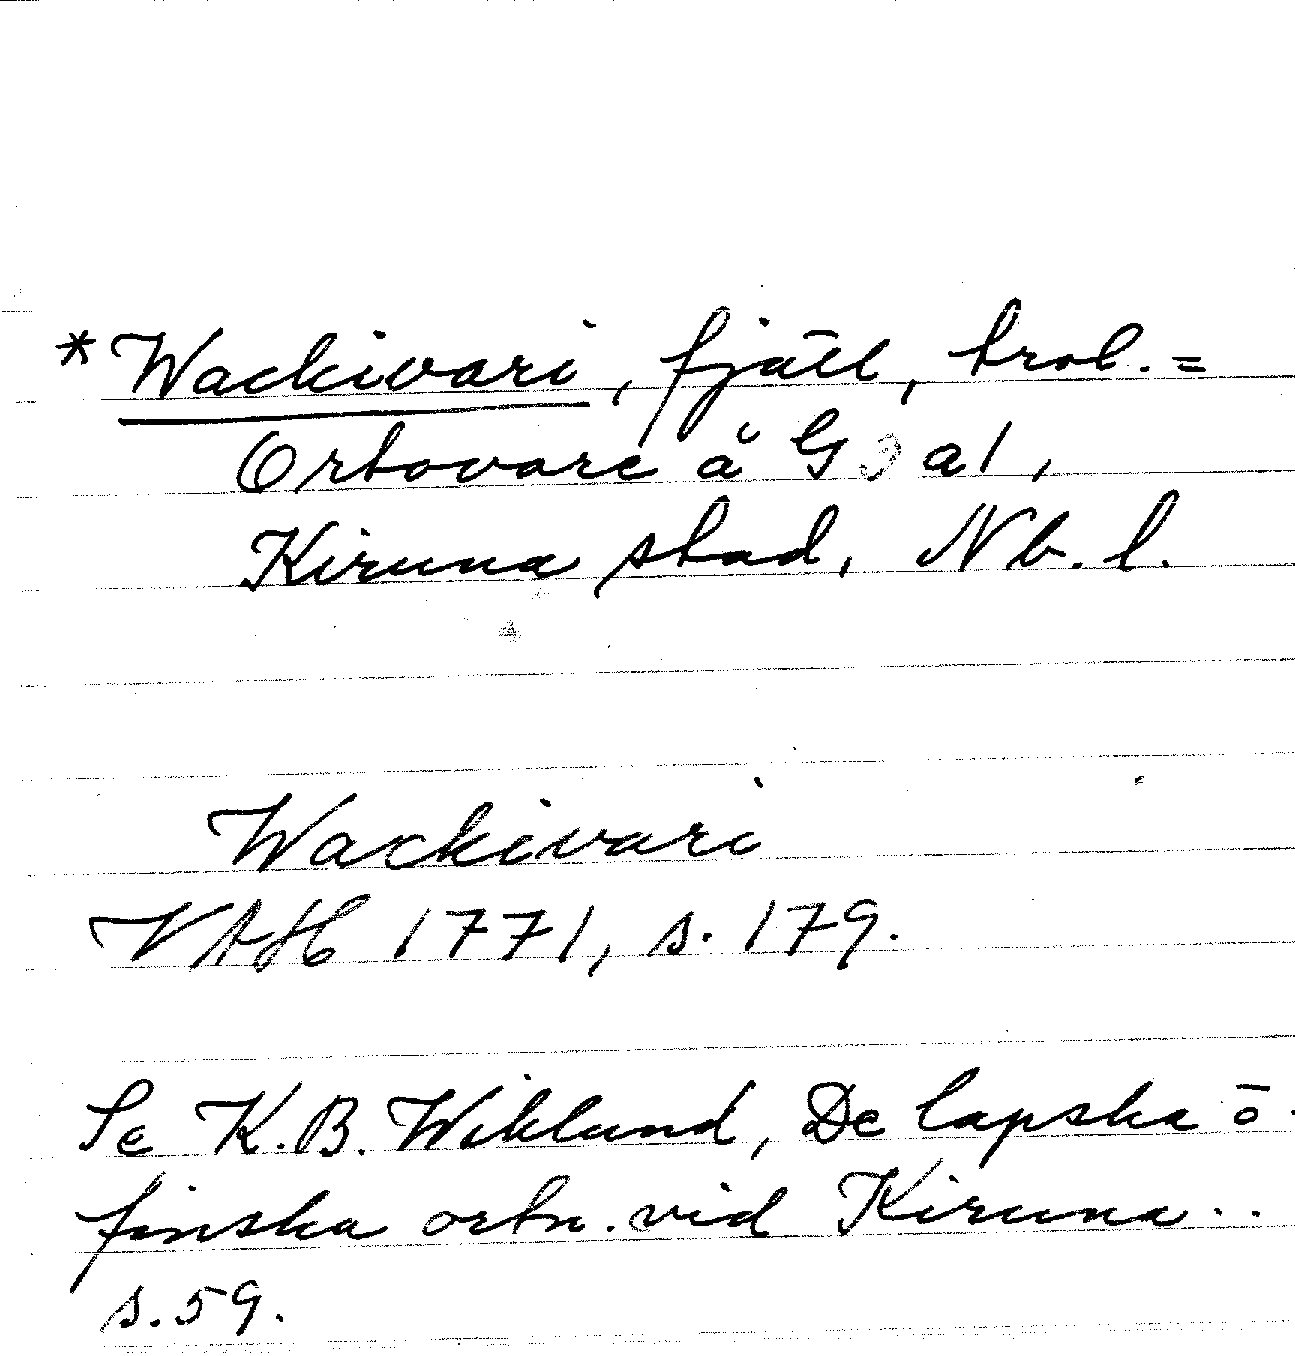 *Wackivari, fjäll, trol. =
Ortovare å G a1,
Kiruna stad, Nb. l.
Wackivari
VAH 1771, s. 179.
Se K.B. Wiklund, De lapska o.
finska ortn. vid Kiruna..
s. 59.